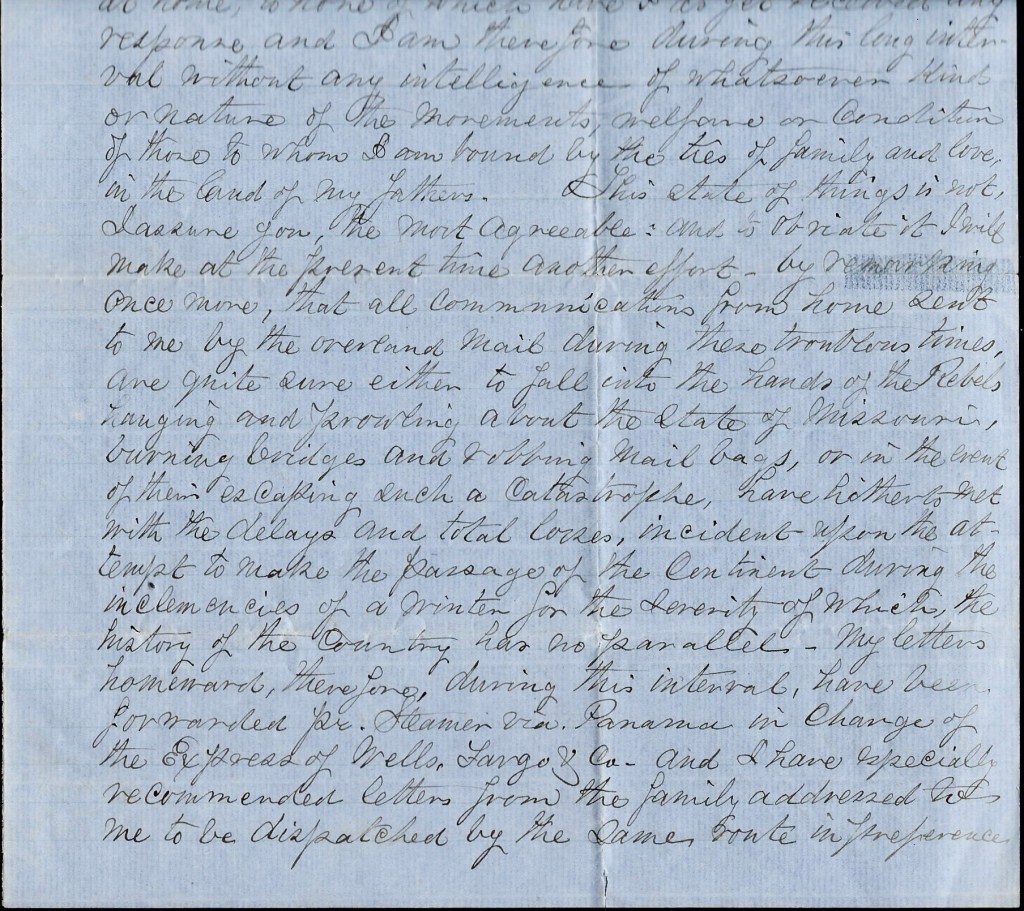 at home, to none of which have I as yet received any
response, and I am therefore during this long inter-
val without any intelligence of whatsoever kind
or nature of the movements, welfare or condition
of those to whom I am bound by the ties of family and love,
in the land of my fathers. This state of things is not,
I assure you, the most agreeable: and to obviate it I will
make at the present time another effort - by remarking
once more, that all communications from home sent
to me by the overland mail during these troublous times,
are quite sure either to fall into the hands of the Rebels
hanging and prowling about the State of Missouri,
burning bridges and robbing mail bags, or in the event
of their escaping such a catastrophe, have hitherto met
with the delays and total losses, incident upon the at-
tempt to make the passage of the Continent during the
inclemencies of a winter for the severity of which, the
history of the Country has no parallel - My letters
homeward, therefore, during this interval, have been
forwarded pr. Steamer via. Panama in charge of
the Express of Wells, Fargo & Co - and I have specially
recommended letters from the family addressed to
me to be dispatched by the same route in preference